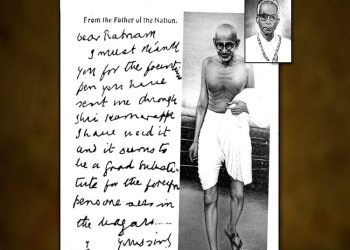 From the Father of the Nation.
Dear Ratnam
I must thank
you for the fountain
pen you have
sent me through
Shri Kumarappa
I have used it
and it seems to
be a good substi-
tute for the foreign
pens one sees in
the bazars......
Yours